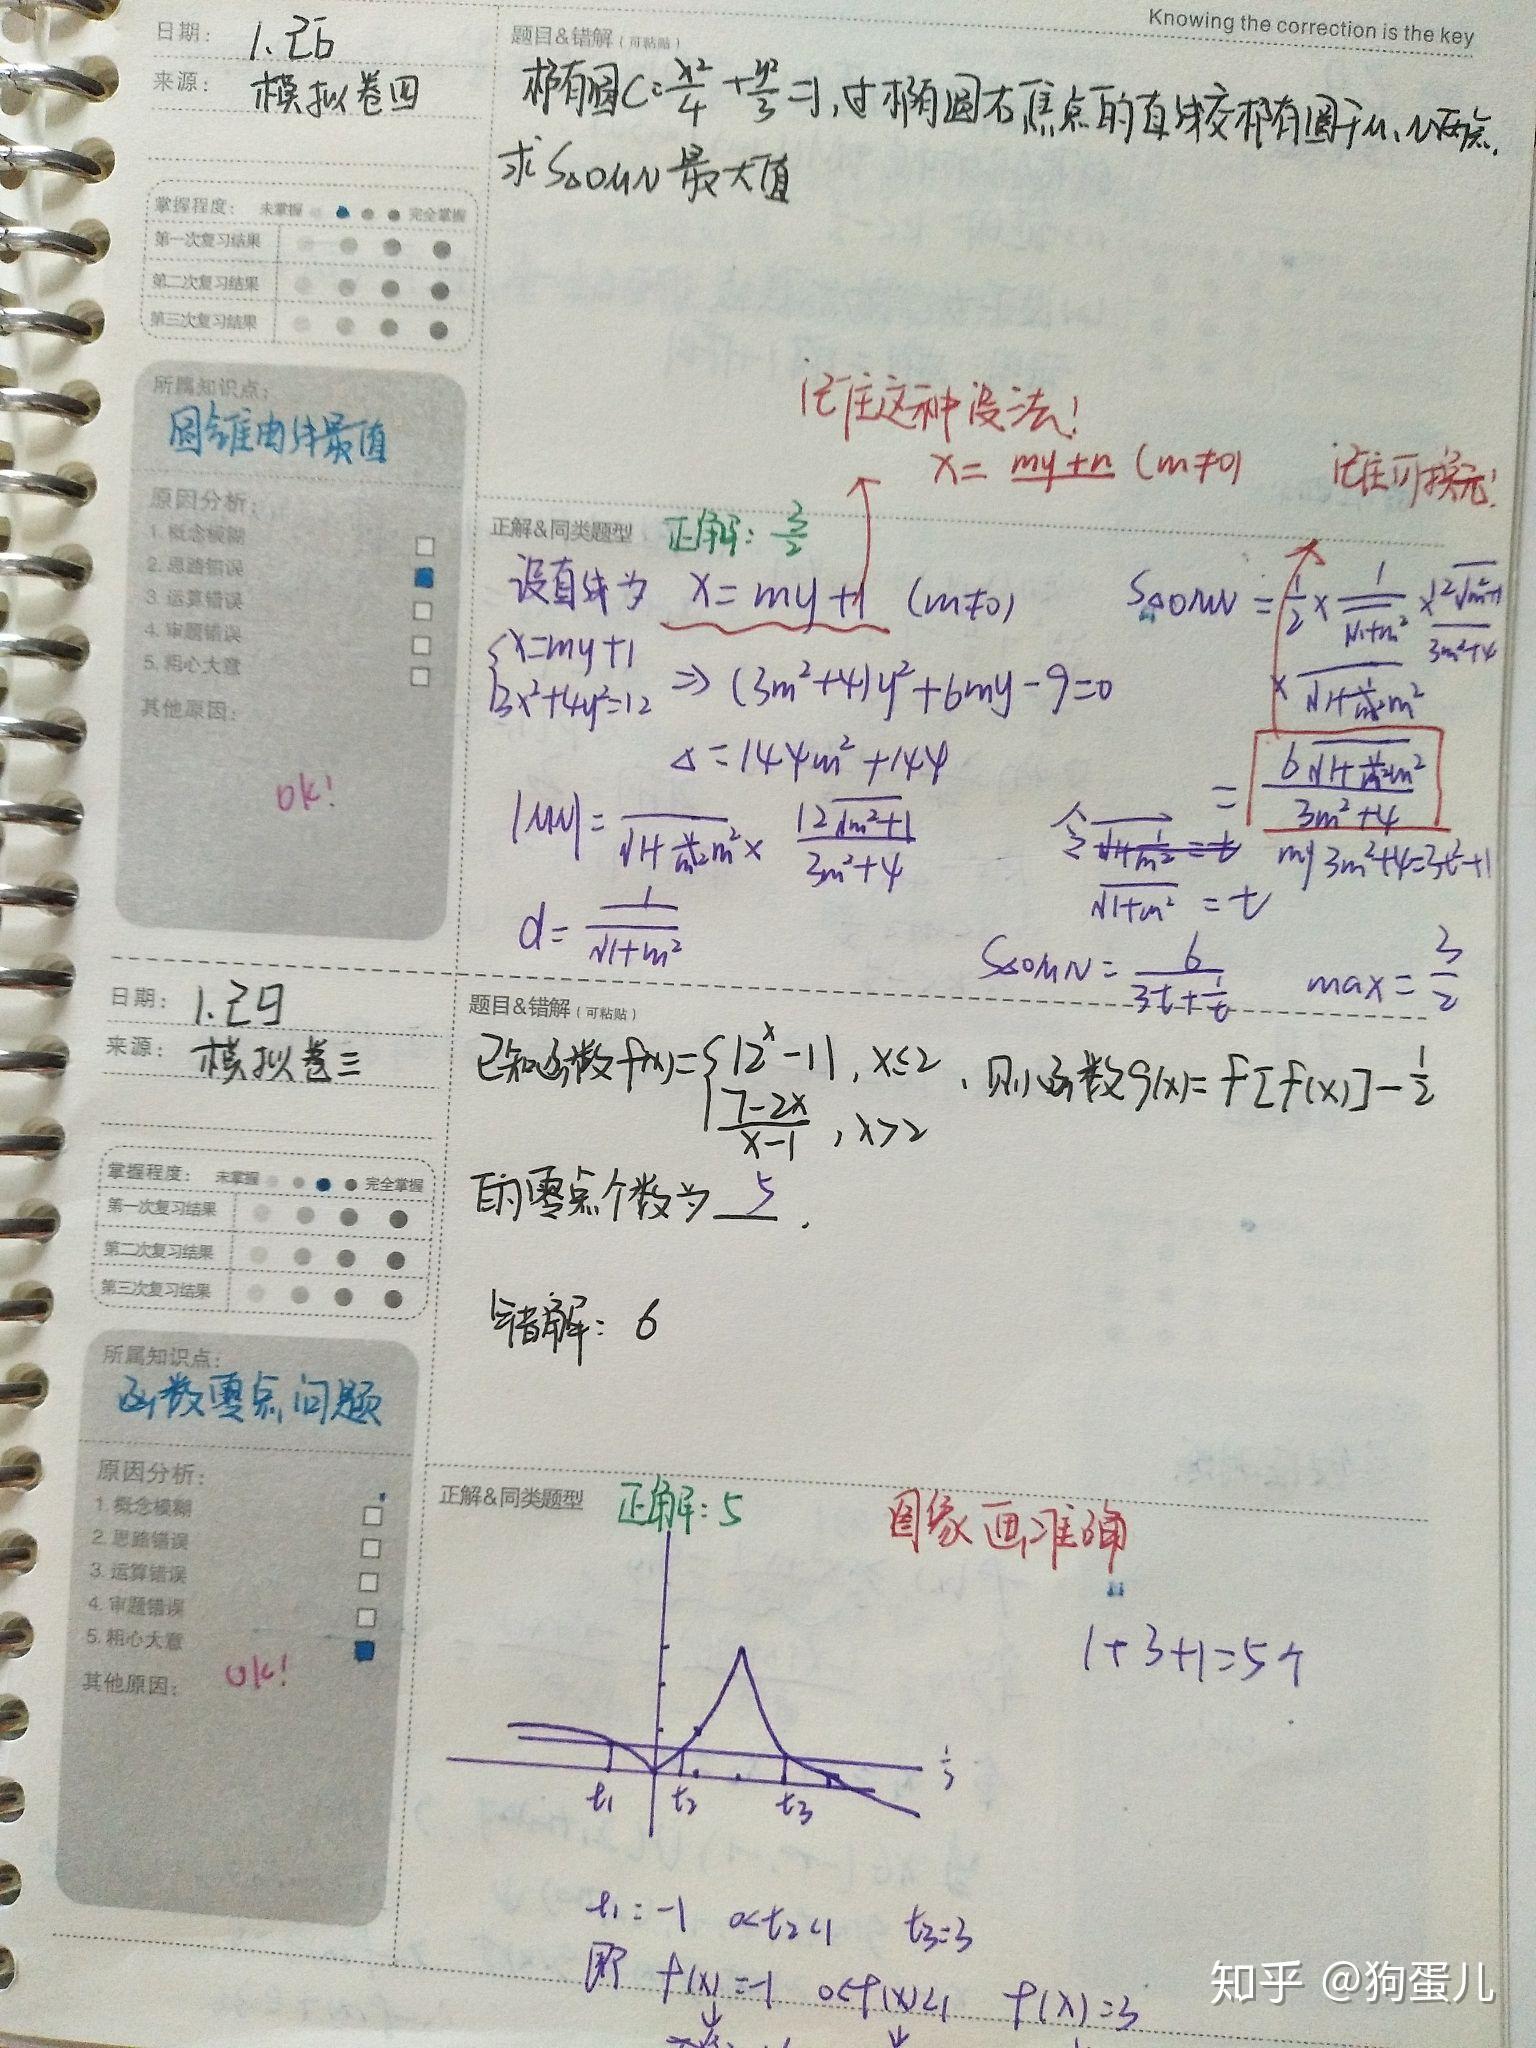 Knowing the correction is the key
日期： 1.26
来源： 模拟卷四
题目&错解（可粘贴）
椭圆C：x²/4 + y²/3 =1，过椭圆右焦点的直线交椭圆于M、N两点，
求S△OMN最大值
掌握程度： 未掌握 完全掌握
第一次复习结果
第二次复习结果
第三次复习结果
所属知识点：
圆锥曲线最值
原因分析：
1. 概念模糊
2. 思路错误
3. 运算错误
4. 审题错误
5. 粗心大意
其他原因：
ok!
记住这种设法!
x= my+n (m≠0)
记住可换元!
正解&同类题型 正解：3/2
设直线为 x=my+1 (m≠0)
{x=my+1
3x²+4y²=12 ⇒ (3m²+4)y²+6my-9=0
△=144m²+144
|MN|= √1+m² × 12√m²+1/3m²+4
d= 1/√1+m²
S△OMN = 1/2 × 1/√1+m² × 12√m²+1/3m²+4
×√1+m²
= 6√1+m²/3m²+4
令
则 3m²+4=3t²+1
√1+m² = t
S△OMN = 6/3t+1/t max = 3/2
日期： 1.29
来源： 模拟卷三
题目&错解（可粘贴）
已知函数f(x)={|2^x-1|, x≤2
7-2x/x-1, x>2 ，则函数g(x)= f[f(x)]-1/2
的零点个数为 5 .
错解：6
掌握程度： 未掌握 完全掌握
第一次复习结果
第二次复习结果
第三次复习结果
所属知识点：
函数零点问题
原因分析：
1. 概念模糊
2. 思路错误
3. 运算错误
4. 审题错误
5. 粗心大意
其他原因： ok!
正解&同类题型 正解：5
图象画准确
1+3+1=5个
1/2
t₁ t₂ t₃
t₁=-1 0<t₂<1 t₃=3
即 f(x)=-1 0<f(x)<1 f(x)=3
知乎 @狗蛋儿